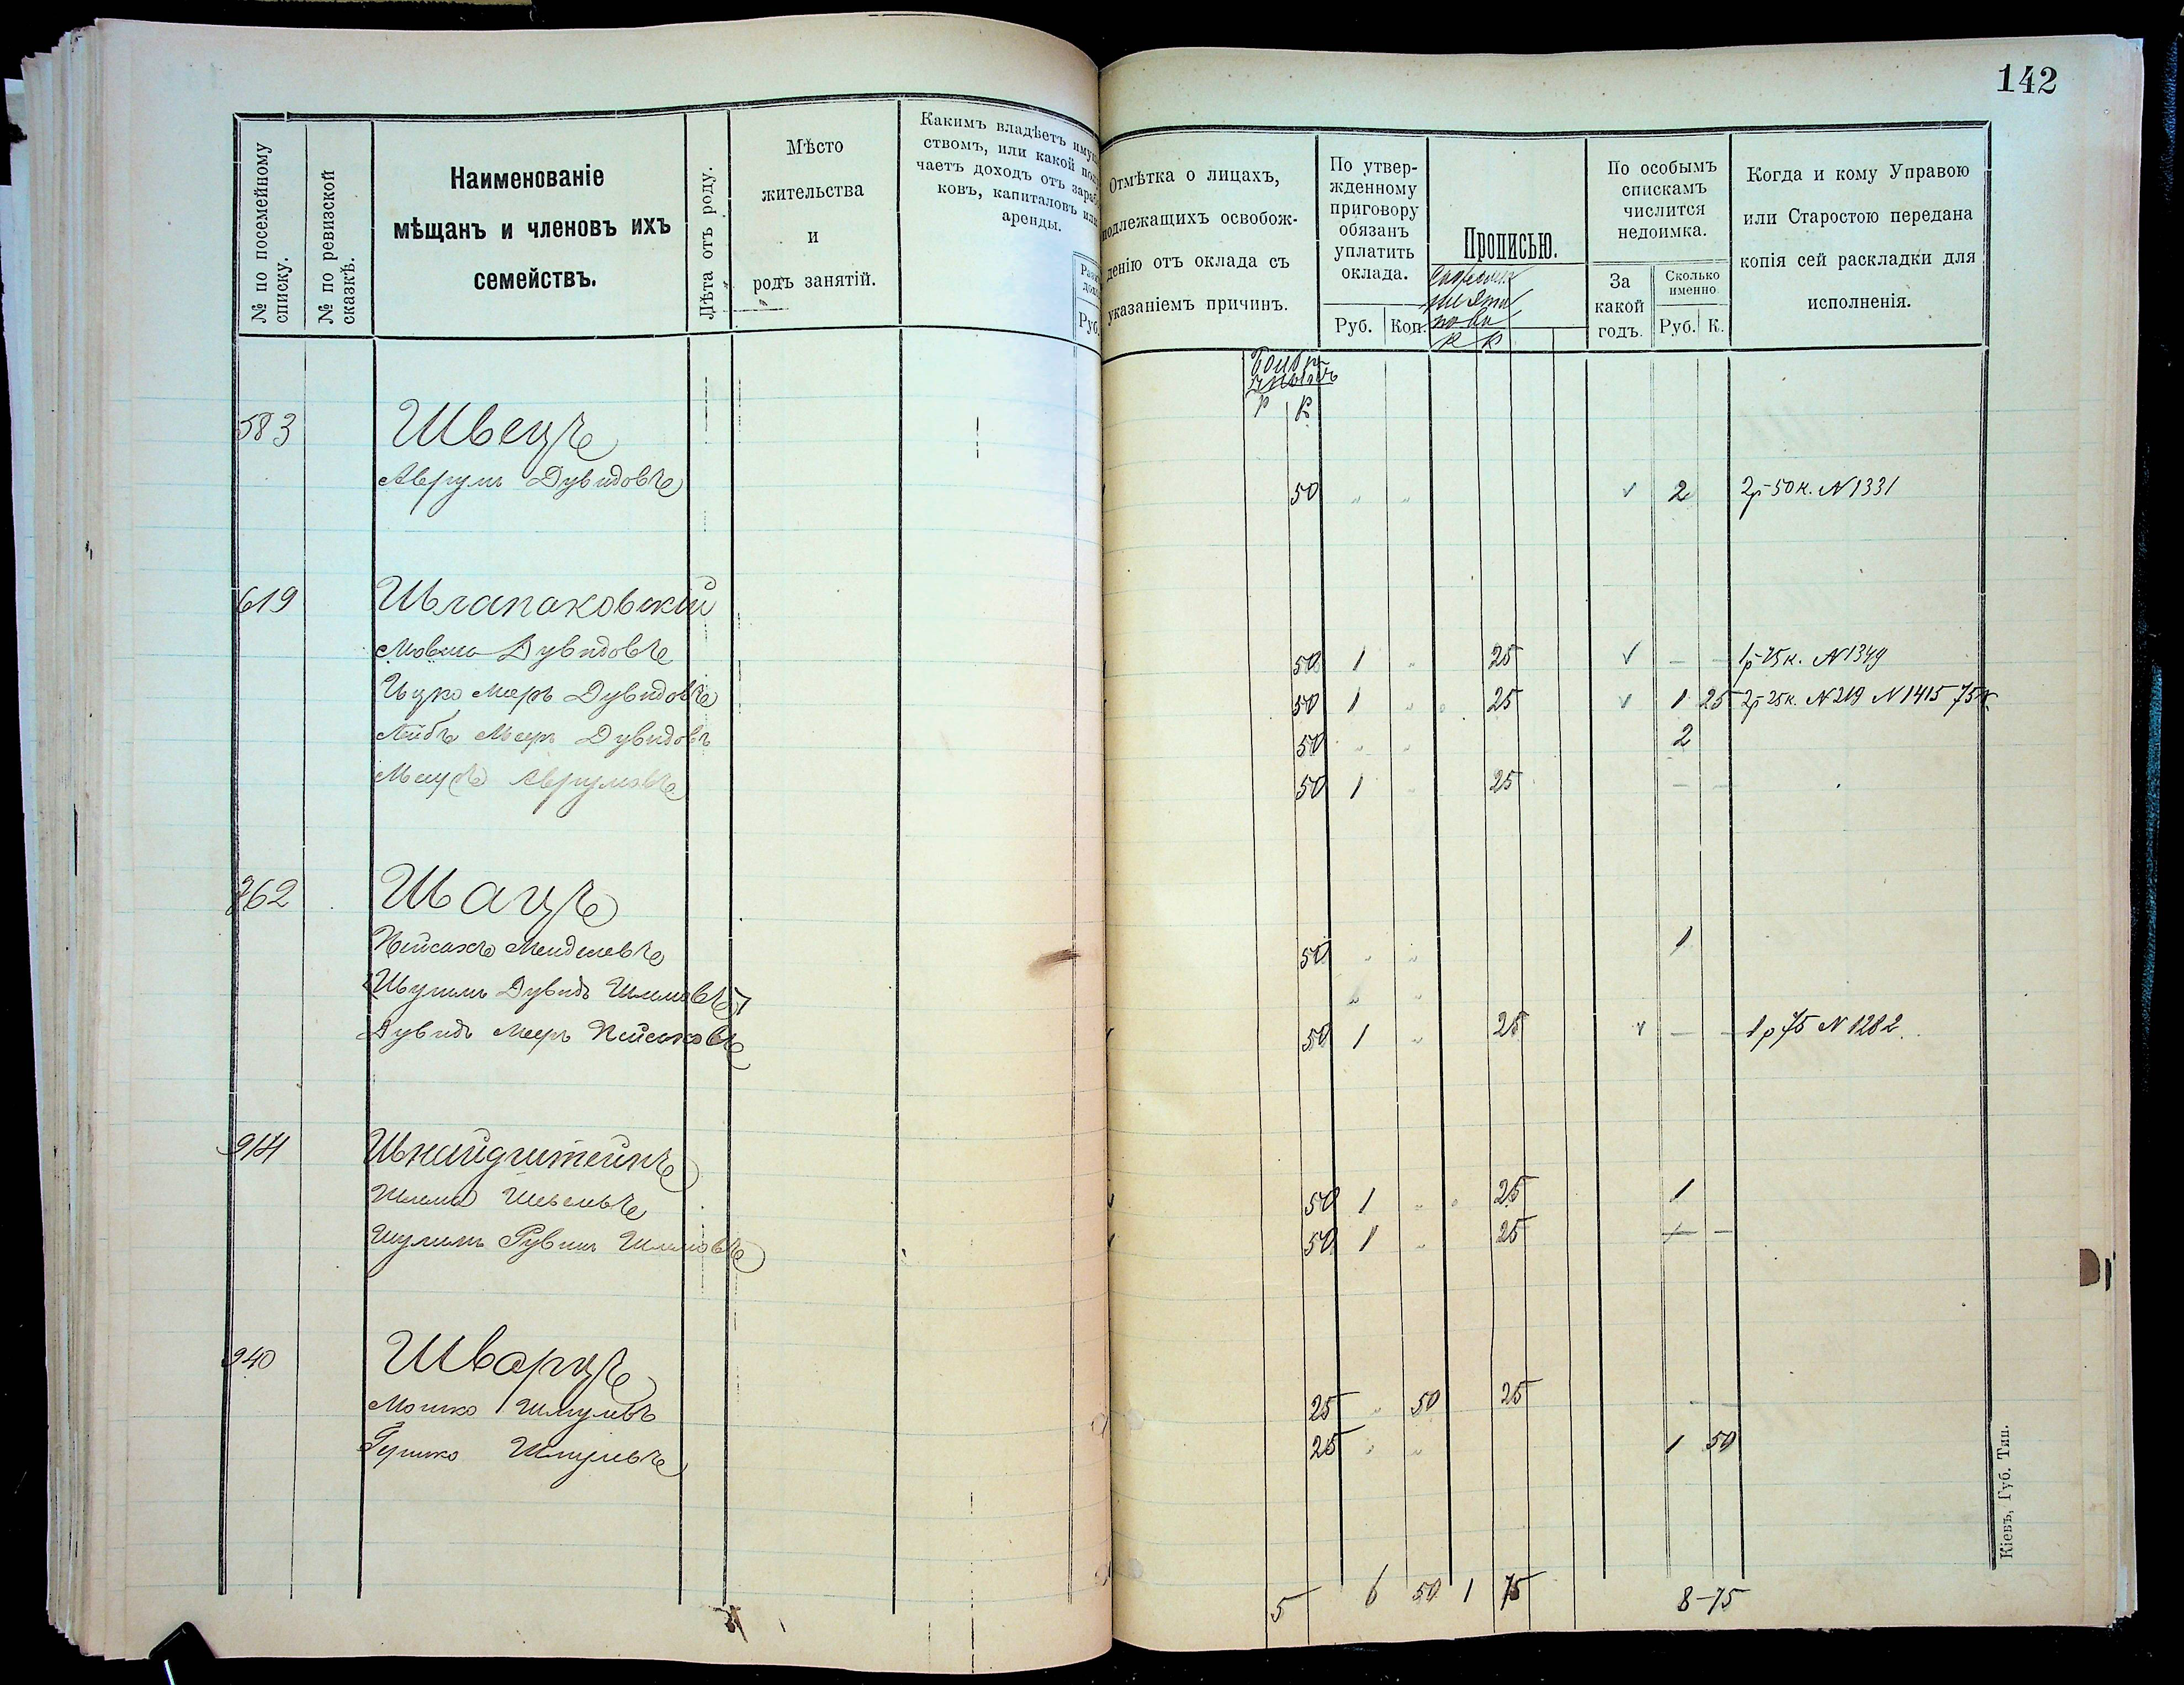 142
№ по посемейному списку.
№ по ревизской сказкѣ.
Наименованіе
мѣщанъ и членовъ ихъ
семействъ.
Лѣта отъ роду.
Мѣсто
жительства
и
родъ занятій.
Какимъ владѣетъ
ствомъ, или какой
чаетъ доходъ отъ
ковъ, капиталовъ или
аренды.
Руб.
Отмѣтка о лицахъ,
подлежащихъ освобож-
денію отъ оклада съ
указаніемъ причинъ.
По утвер-
жденному
приговору
обязанъ
уплатить
оклада.
Руб. Коп.
Прописью.
Р К
По особымъ
спискамъ
числится
недоимка.
За
какой
годъ.
Сколько
именно.
Руб. К.
Когда и кому Управою
или Старостою передана
копія сей раскладки для
исполненія.
Р К
583 Швецъ
Аврумъ Дувидовъ 50 „ „ 2 2р 50к. N 1331
619
Мовша Дувидовъ 50 1 „ 25 — — 1р 75к. N 1349
Ицко Меръ Дувидовъ 50 1 „ 25 1 25 2р 25к. N 219 N 1415 75к
Лейбъ Меръ Дувидовъ 50 „ „ 2
Аврумовъ 50 1 „ 25 — —
762 Шацъ
Пейсахъ Менделевъ 50 „ „ 1
Шулимъ Дувидъ Шлиомовъ „ „
Дувидъ Меръ Пейсаховъ 50 1 „ 25 — — 1р 75 N 1282
914
Шлема 50 1 „ 25 1
Шулимъ Рувинъ Шлемовъ 50 1 „ 25 — —
940 Шварцъ
Мошко Шмулевъ 25 „ 50 25 —
Гершко Шмулевъ 25 „ „ 1 50
5 6 50 1 75 8-75
Кіевъ, Губ. Тип.